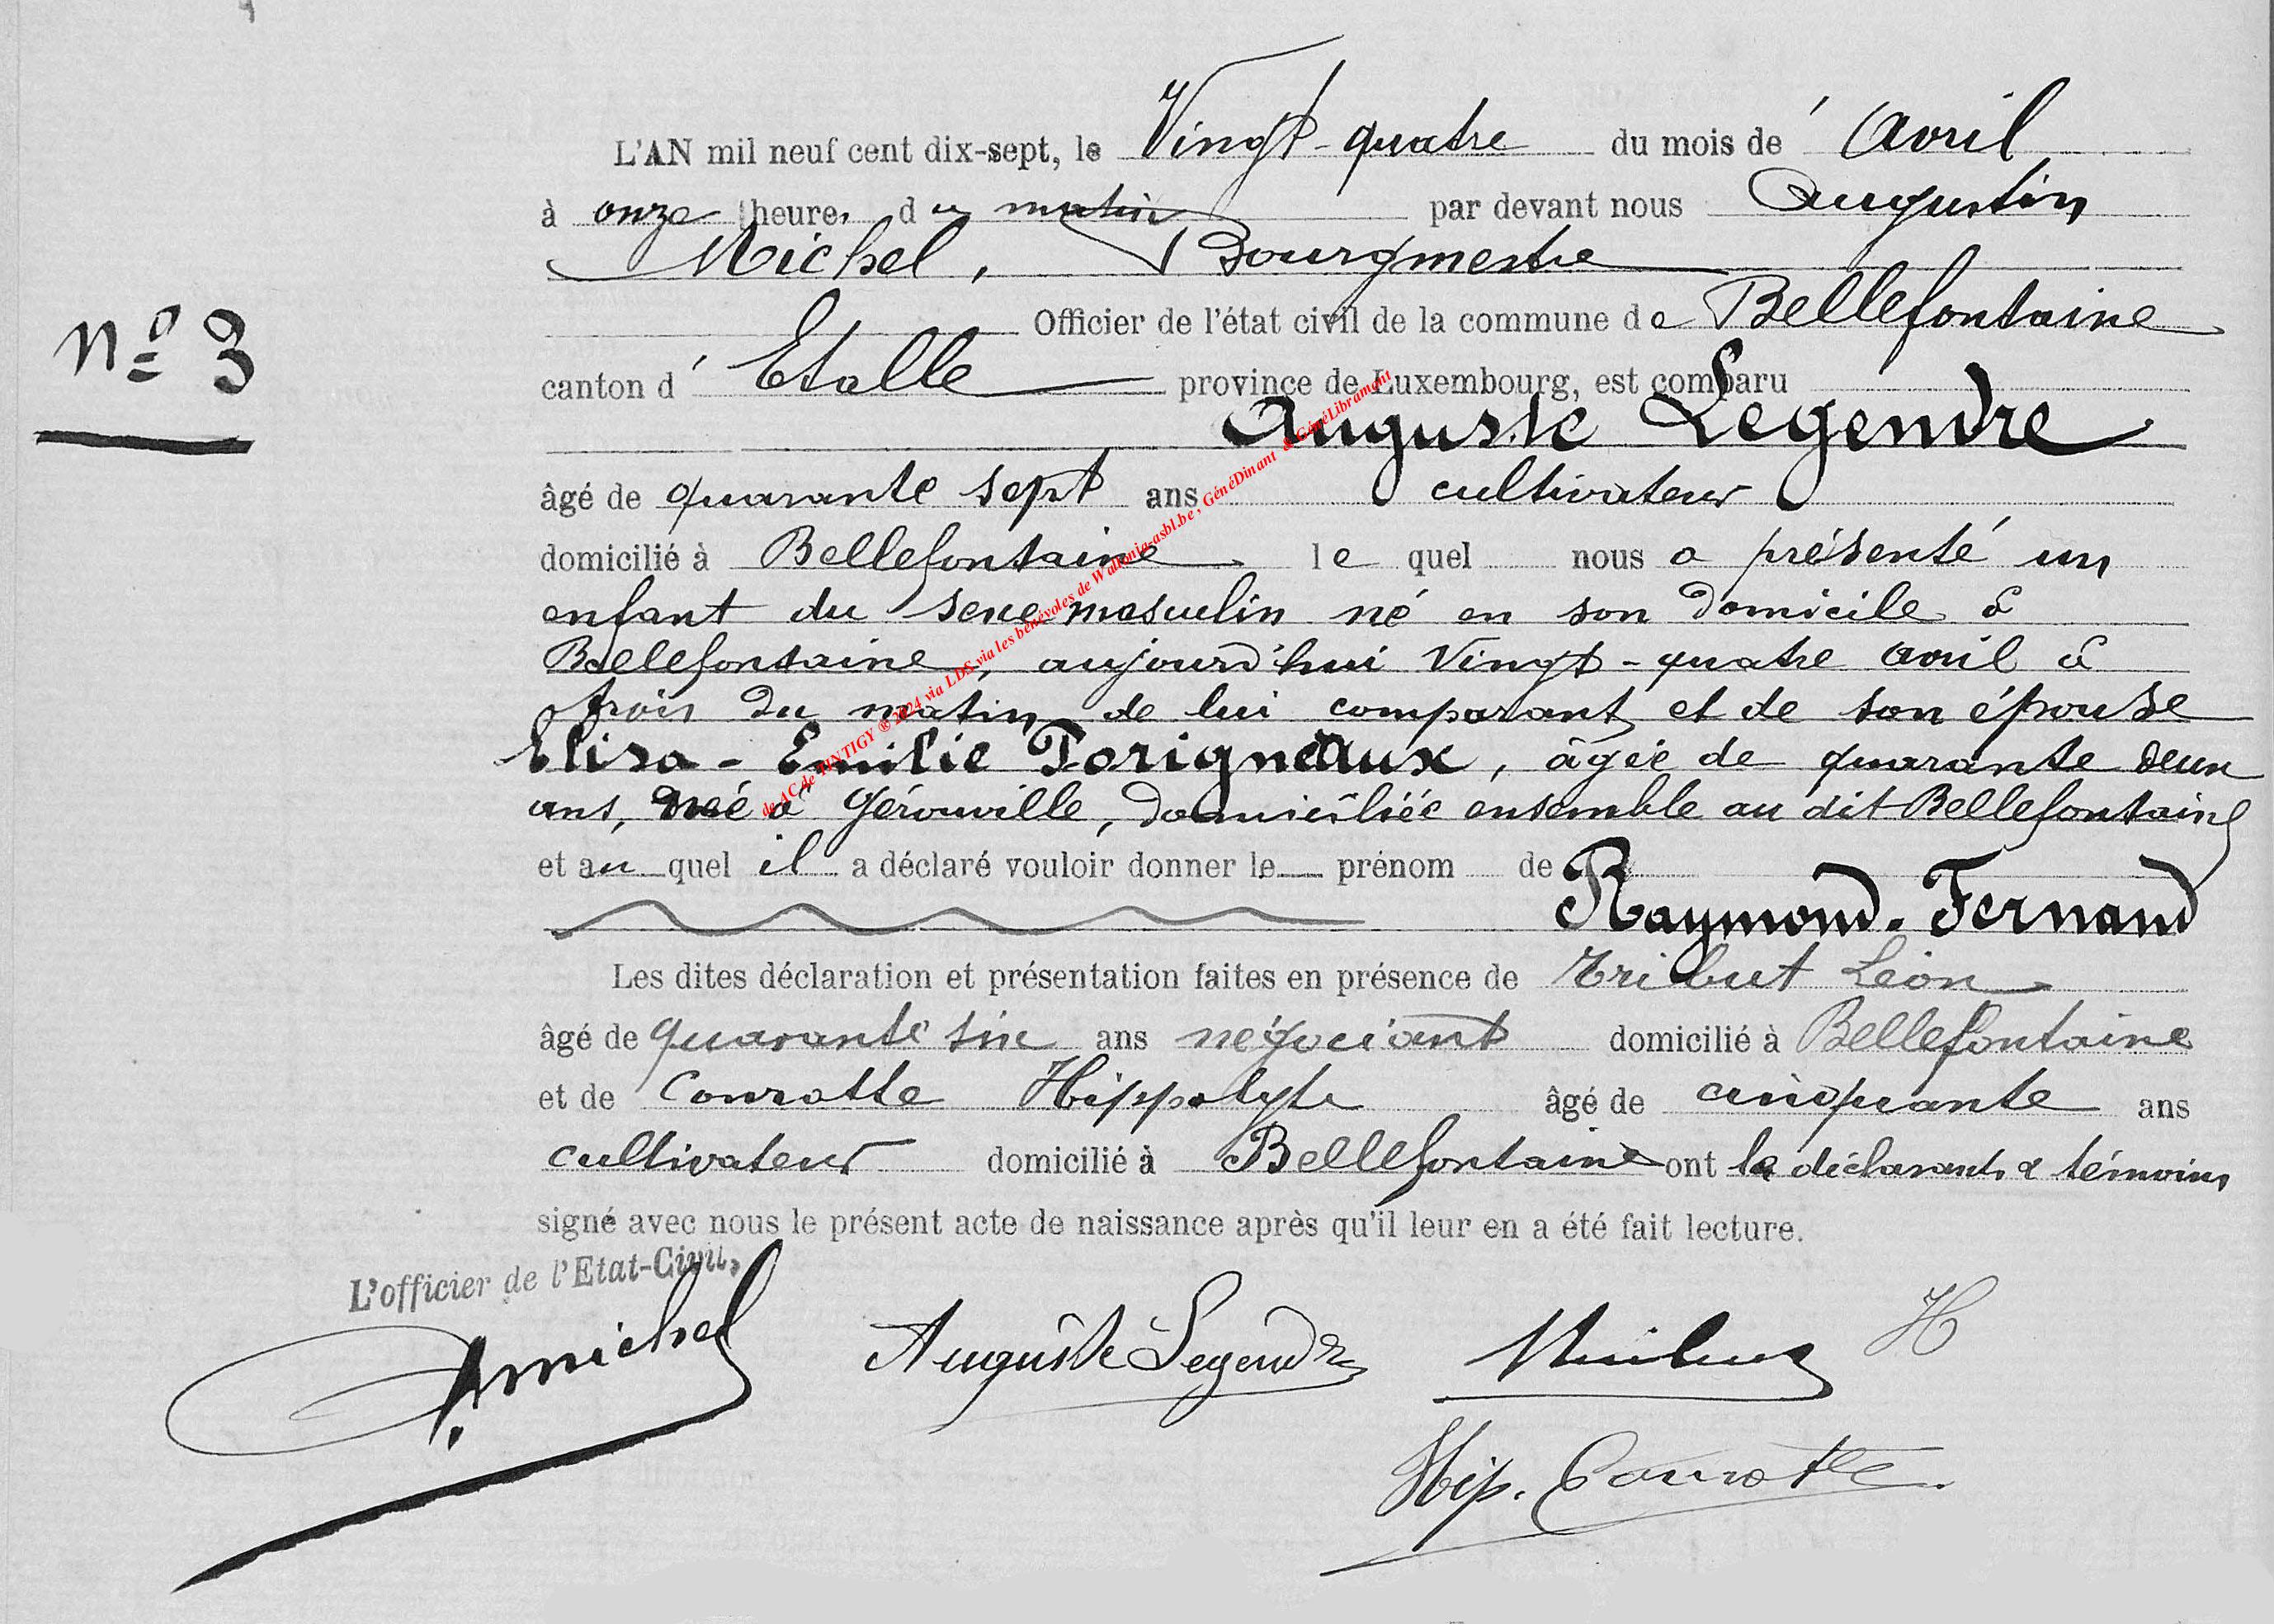 L'AN mil neuf cent dix-sept, le Vingt-quatre du mois de Avril
à onze heures du matin par devant nous Augustin
Michel, Bourgmestre
N° 3
Officier de l'état civil de la commune de Bellefontaine
canton d' Etalle province de Luxembourg, est comparu
Auguste Legendre
âgé de quarante sept ans cultivateur
domicilié à Bellefontaine lequel nous a présenté un
enfant du sexe masculin né en son domicile à
Bellefontaine, aujourd'hui Vingt-quatre avril à
trois du matin de lui comparant et de son épouse
Elisa-Emilie Porigneaux, âgée de quarante deux
ans, née à Gérouville, domiciliée ensemble au dit Bellefontaine
et auquel il a déclaré vouloir donner le prénom de
Raymond-Fernand
Les dites déclaration et présentation faites en présence de Tribut Léon
âgé de quarante six ans négociant domicilié à Bellefontaine
et de Conrotte Hippolyte âgé de cinquante ans
cultivateur domicilié à Bellefontaine ont le déclarant & témoins
signé avec nous le présent acte de naissance après qu'il leur en a été fait lecture.
L'officier de l'Etat-Civil,
A michel Auguste Legendre H
Hip. Conrotte
de AC de TINTIGY ® 2024 via LDS via les bénévoles de Wallonia-asbl.be, GénéDinant & GénéLibramont